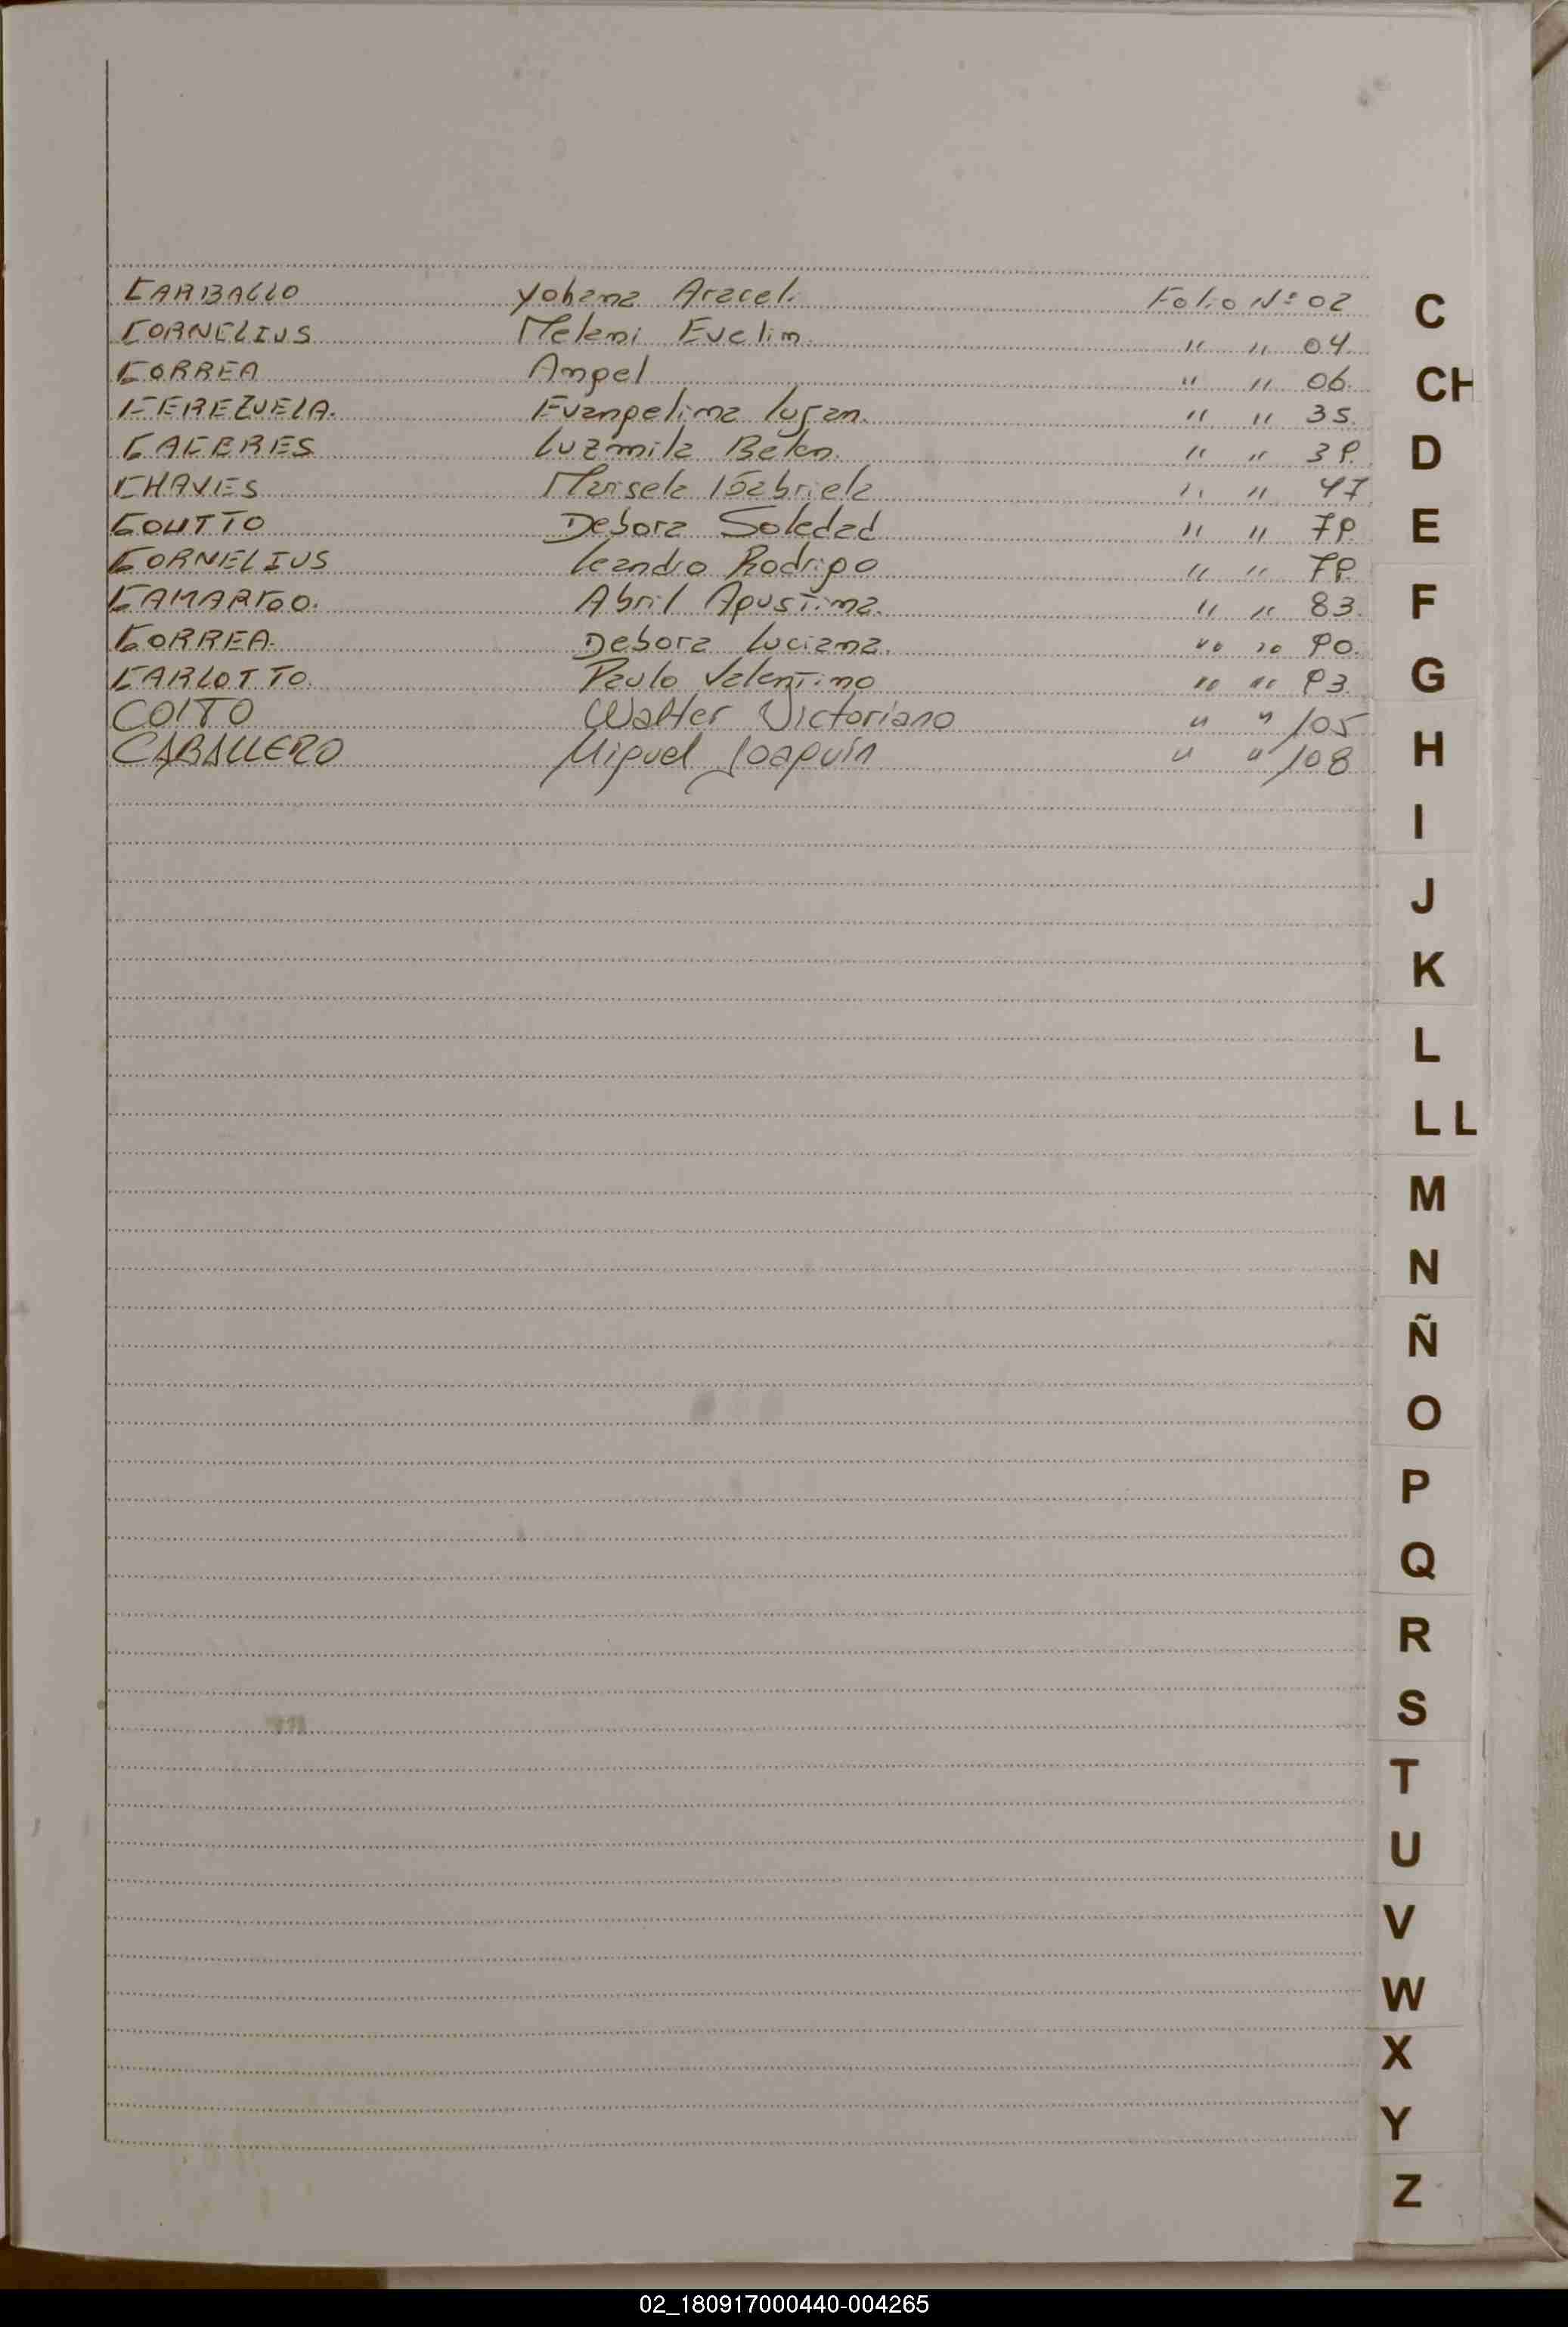 CARBALLO Yohana Araceli Folio Nº 02
CORNELIUS Melani Evelin. " " 04
CORREA Angel " " 06.
CEREZUELA. Evangelina Lujan. " " 35.
CACERES Luzmila Belen. " " 39.
CHAVES Marisela Gabriela " " 47
COUTTO Debora Soledad " " 79.
CORNELIUS Leandro Rodrigo " " 79.
CAMARGO. Abril Agustina. " " 83.
CORREA. Debora Luciana. " " 90.
CARLOTTO. Paulo Valentino " " 93.
COITO Walter Victoriano " " 105
CABALLERO Miguel Joaquín " " 108
C
CH
D
E
F
G
H
I
J
K
L
LL
M
N
Ñ
O
P
Q
R
S
T
U
V
W
X
Y
Z
02_180917000440-004265